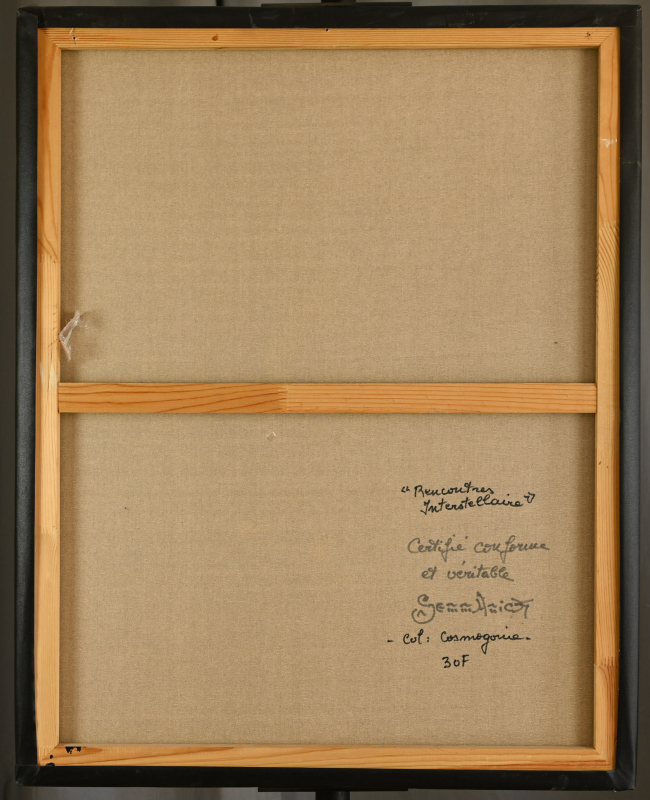 "Rencontres
Interstellaire"
Certifié conforme
et véritable
- Col: Cosmogonie -
30F